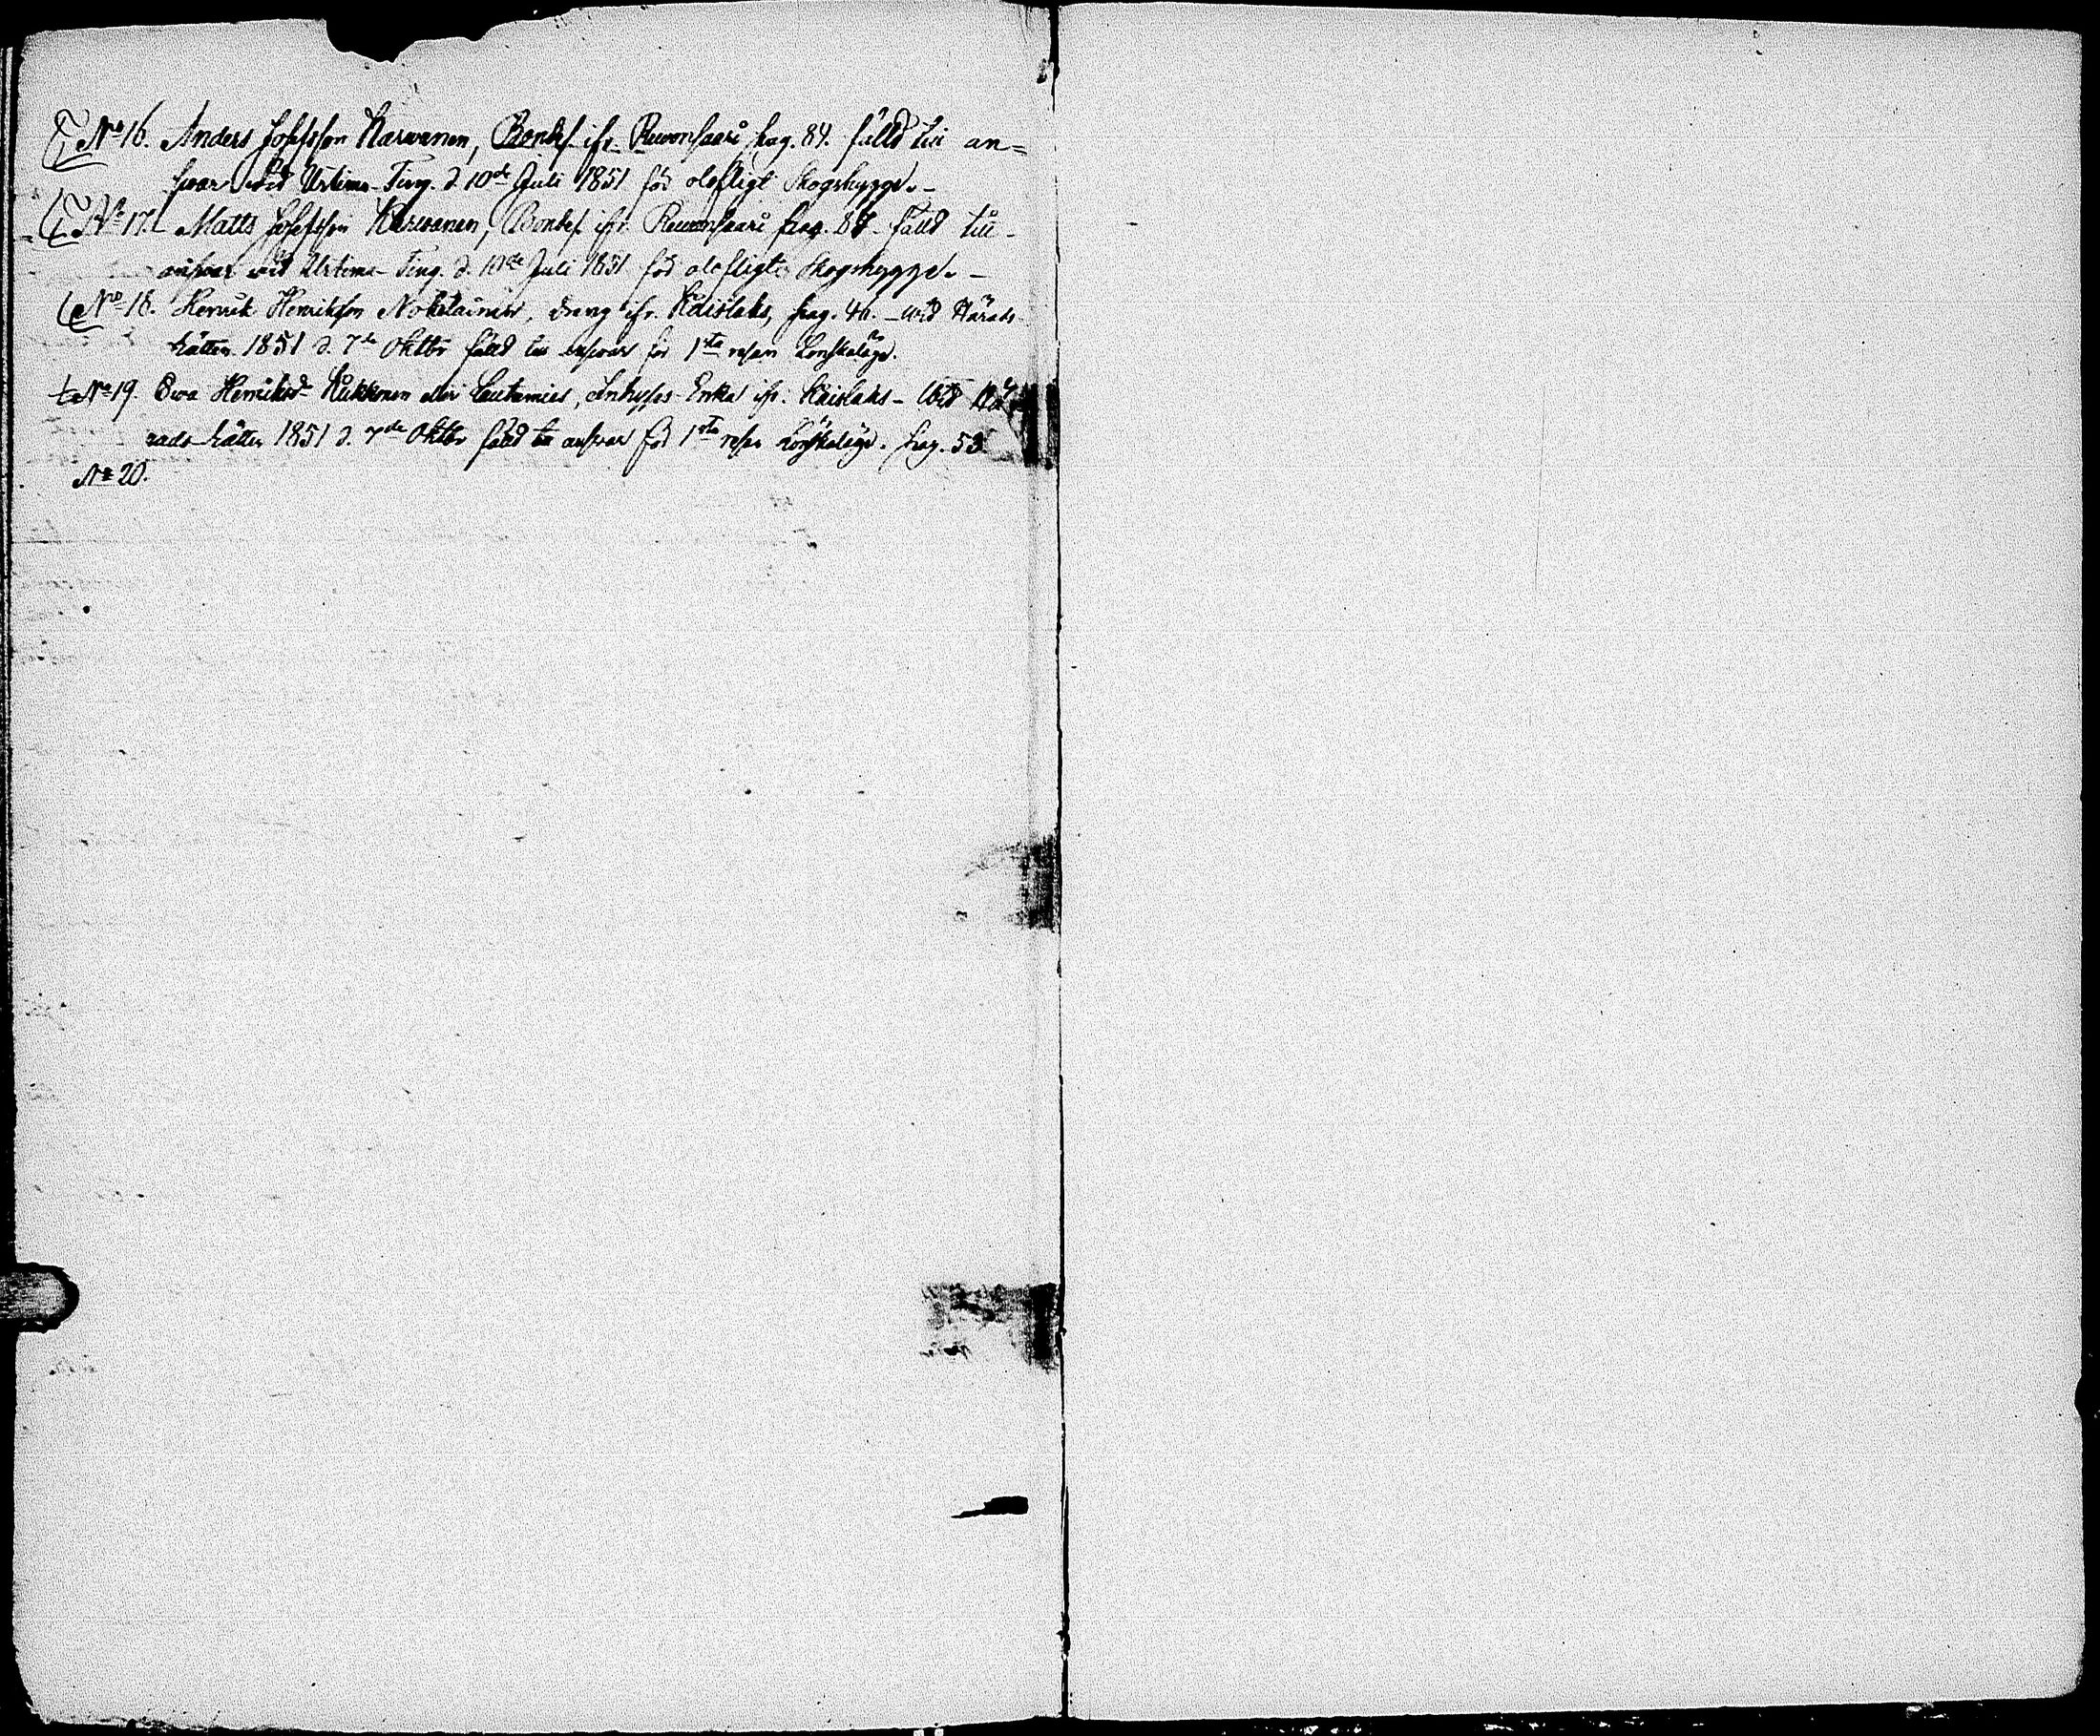 No 16. Anders Josefsson Karvanen, Bondes. ifr. Revonsaari pag. 84. fälld till an=
svar vid Urtima-Ting. d. 10de Juli 1851 för olofligt Skogshygge. -
No 17. Matts Josefsson Karvanen, Bondes. ifr. Revonsaari pag. 84 - fälld till
ansvar vid Urtima-Ting. d. 10de Juli 1851 för olofligt Skogshygge. -
No 18. Henrik Henriksson Nokelainen, dreng ifr. Kaislaks, pag. 46. - wid Härads
Rätten 1851 d. 7de Oktbr fälld till ansvar för 1sta resan Lönskaläge.
No 19. Ewa Henriksdr Kukkonen eller Lautamies, Inhyses-Enka ifr. Kaislaks - Wid Hä
rads-Rätten 1851 d. 7de Oktbr fälld till ansvar för 1sta resan Lönskaläge. pag. 53
No 20.